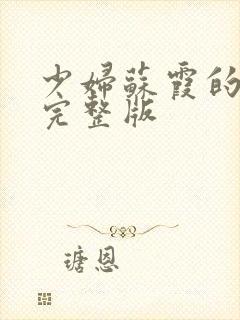 少婦蘇霞的
完整版
瑭恩